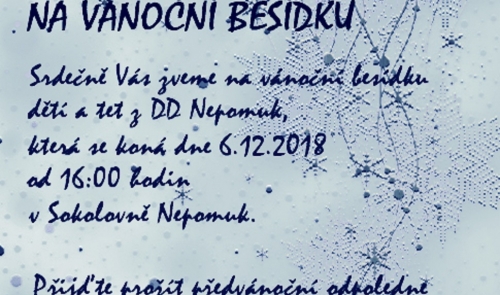 NA VÁNOČNÍ BESÍDKU
Srdečně Vás zveme na vánoční besídku
dětí a tet z DD Nepomuk,
která se koná dne 6.12.2018
od 16:00 hodin
v Sokolovně Nepomuk.
Přijďte prožít předvánoční odpoledne